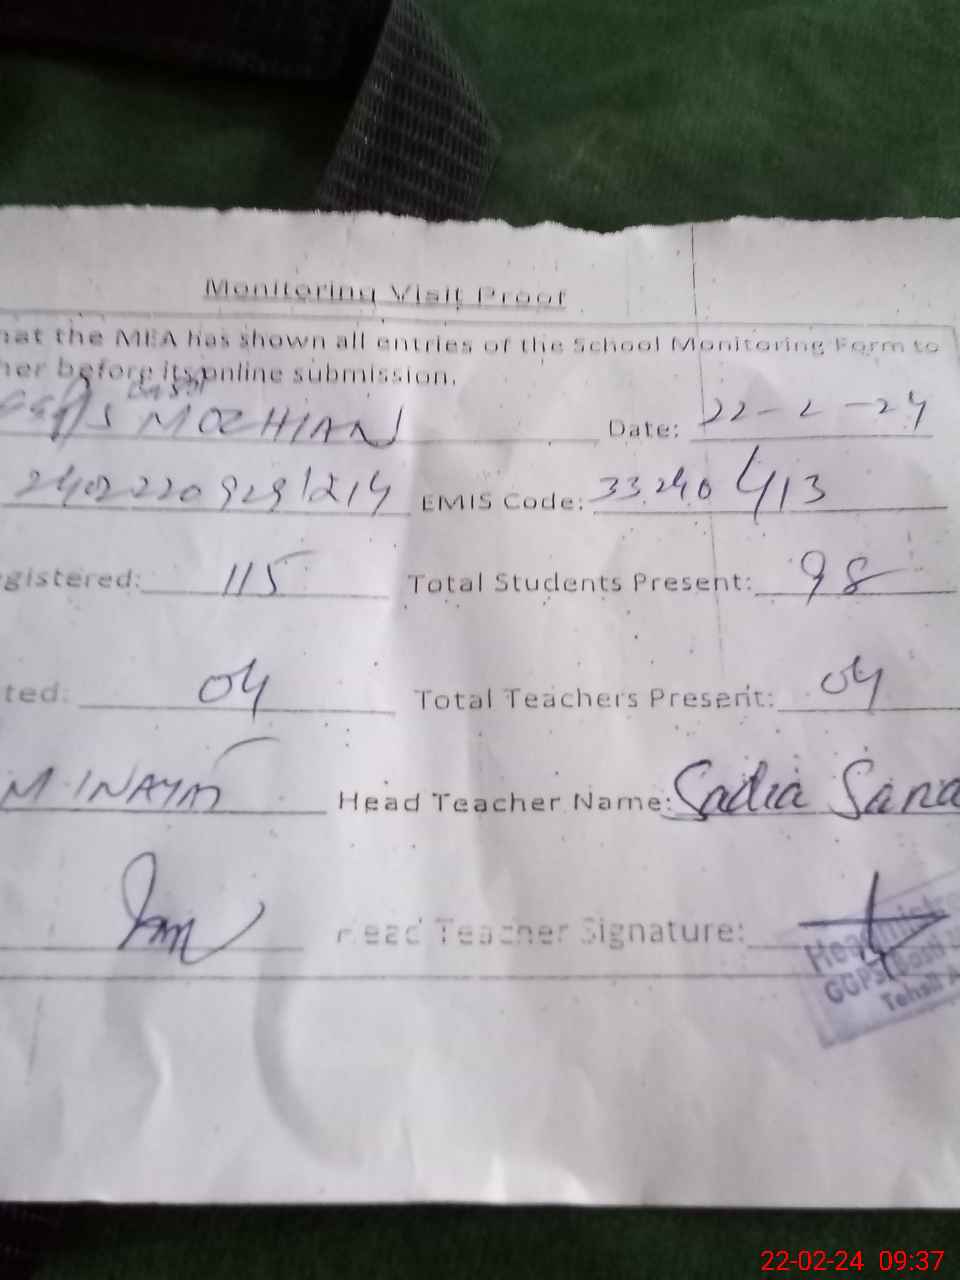 Monitoring Visit Proof
hat the MEA has shown all entries of the School Monitoring Form to
her before its online submission.
Basti
MOCHIAN Date: 22-2-24
24022209291214 EMIS Code: 33240413
egistered: 115 Total Students Present: 98
ted: 04 Total Teachers Present: 04
M. INAYAT Head Teacher Name: Sadia Sana
Head Teacher Signature:
Headmistre
GGPS Basti
Tehsil A
22-02-24 09:37